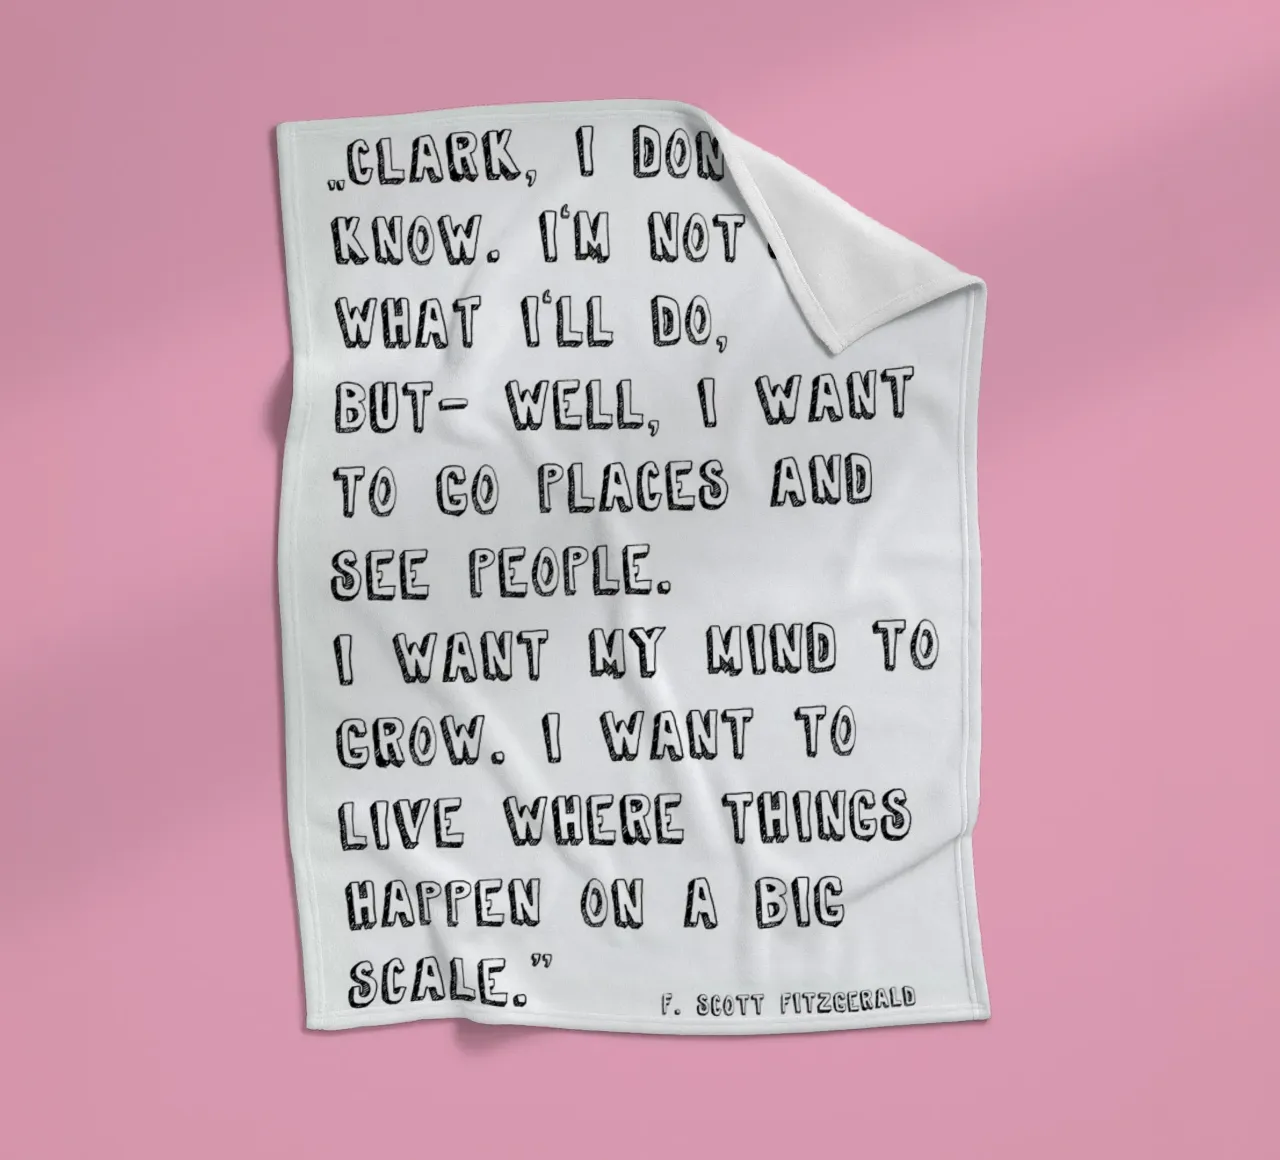 „CLARK, I DON
KNOW. I‘M NOT
WHAT I‘LL DO,
BUT- WELL, I WANT
TO GO PLACES AND
SEE PEOPLE.
I WANT MY MIND TO
GROW. I WANT TO
LIVE WHERE THINGS
HAPPEN ON A BIG
SCALE.”
F. SCOTT FITZGERALD